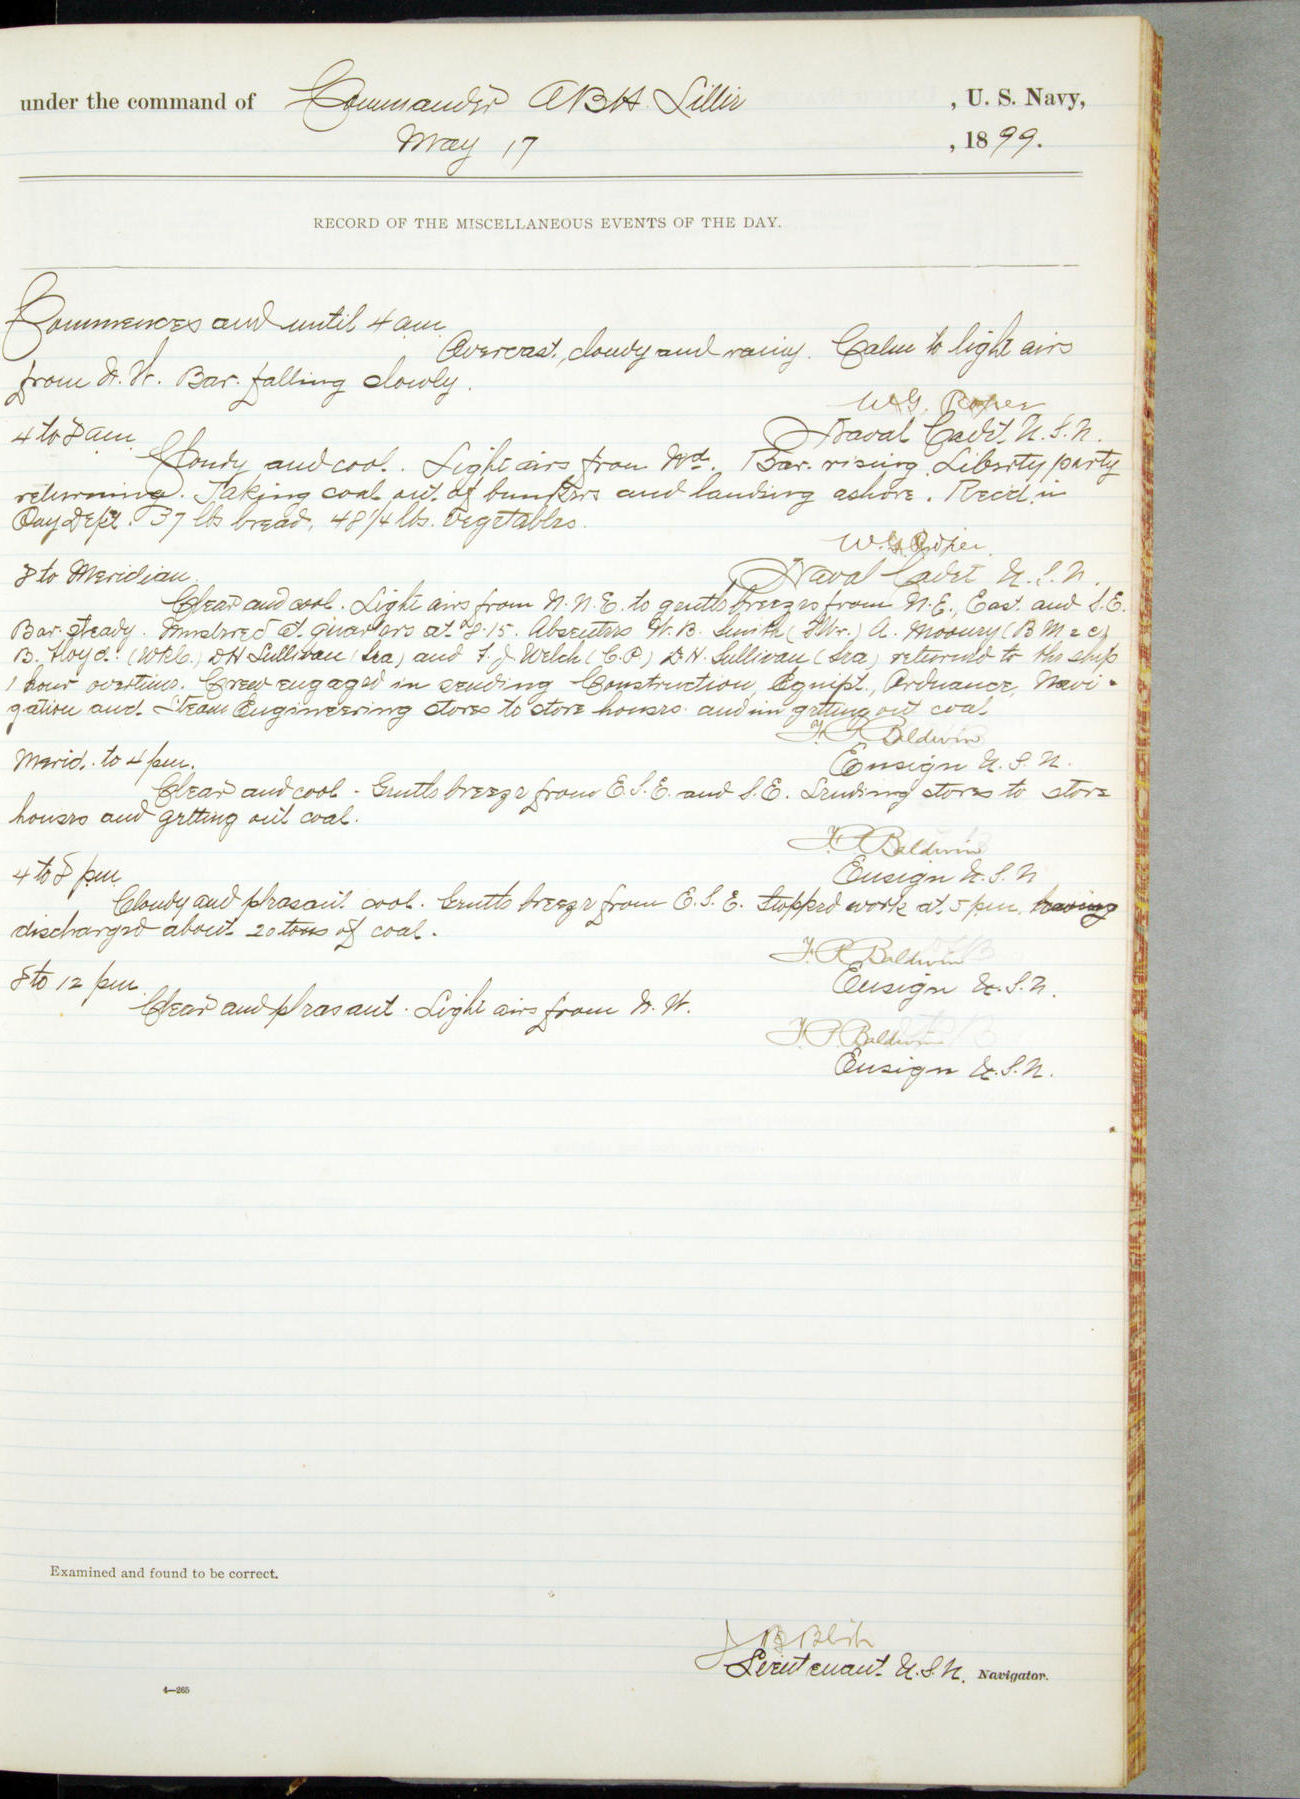 under the command of Commander A B H Lillie , U. S. Navy,
May 17 , 1899.
RECORD OF THE MISCELLANEOUS EVENTS OF THE DAY.
Commences and until 4 am
Overcast, cloudy and rainy. Calm to light airs
from N. W. Bar. falling slowly.
W. G. Roper
Naval Cadet, U.S.N.
4 to 8 am
Cloudy and cool. Light airs from Wd. Bar. rising. Liberty party
returning. Taking coal out of bunkers and landing ashore. Rec'd in
Pay Dept. 37 lbs bread, 48 1/4 lbs. vegetables.
W. G. Roper
Naval Cadet U.S.N.
8 to Meridian
Clear and cool. Light airs from N.N.E. to gentle breezes from N.E., East and S.E.
Bar. steady. Mustered at quarters at 8.15. Absentees W. B. Smith ( ) A. Mooney (B M 2 c)
B. Floyd. ( ) D H Sullivan (Sea) and F. J. Welch (C.P.) D. H. Sullivan (Sea) returned to the ship
1 hour overtime. Crew engaged in sending Construction, Equipt., Ordnance, Navi-
gation and Steam Engineering stores to store houses and in getting out coal
F. P. Baldwin
Ensign U.S.N.
Merid. to 4 pm.
Clear and cool - Gentle breeze from E.S.E. and S.E. Sending stores to store
houses and getting out coal.
F. P. Baldwin
Ensign U.S.N
4 to 8 pm
Cloudy and pleasant cool. Gentle breeze from E.S.E. Stopped work at 5 pm, having
discharged about 20 tons of coal.
F. P. Baldwin
Ensign U.S.N.
8 to 12 pm
Clear and pleasant. Light airs from N.W.
F. P. Baldwin
Ensign U.S.N.
Examined and found to be correct.
J B Blish
Lieutenant U.S.N. Navigator.
4—265